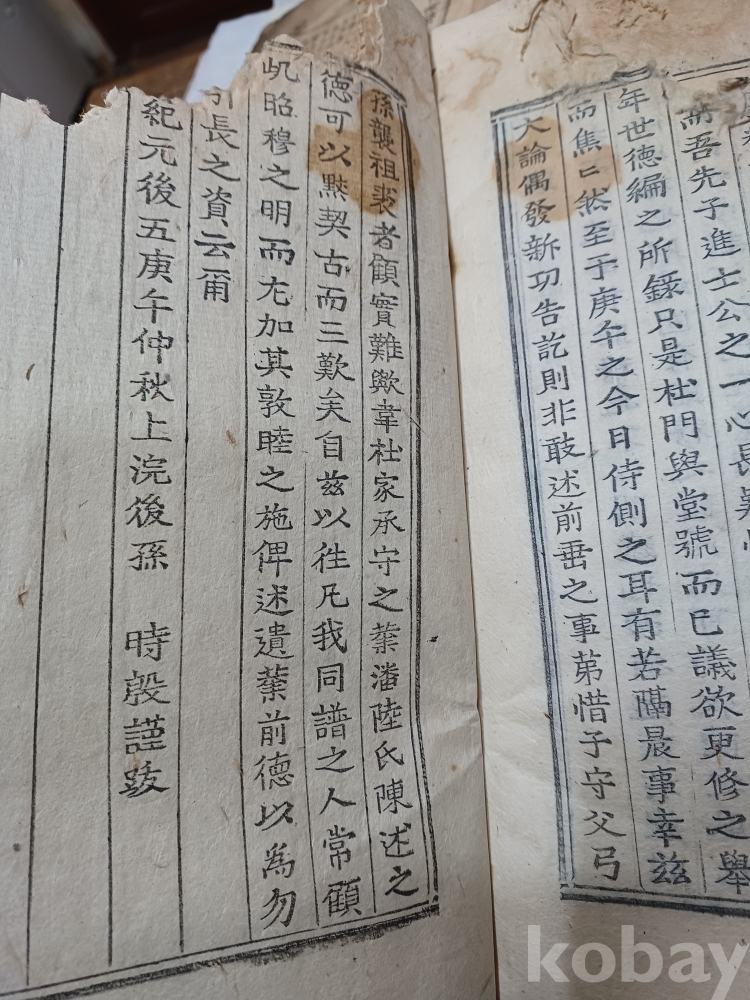 吾先子進士公之一心長難
年世德編之所錄只是杜門與堂號而已議欲更修之舉
而焦〻然至于庚午之今日侍側之耳有若隔晨事幸玆
大論偶發新功告訖則非敢述前垂之事苐惜子守父弓
孫襲祖裘者顧實難歟韋杜家承守之業潘陸氏陳述之
德可以默契古而三歎矣自玆以徃凡我同譜之人常顧
昭穆之明而尤加其敦睦之施俾述遺業前德以爲勿
引長之資云爾
紀元後五庚午仲秋上浣後孫 時殷謹跋
kobay